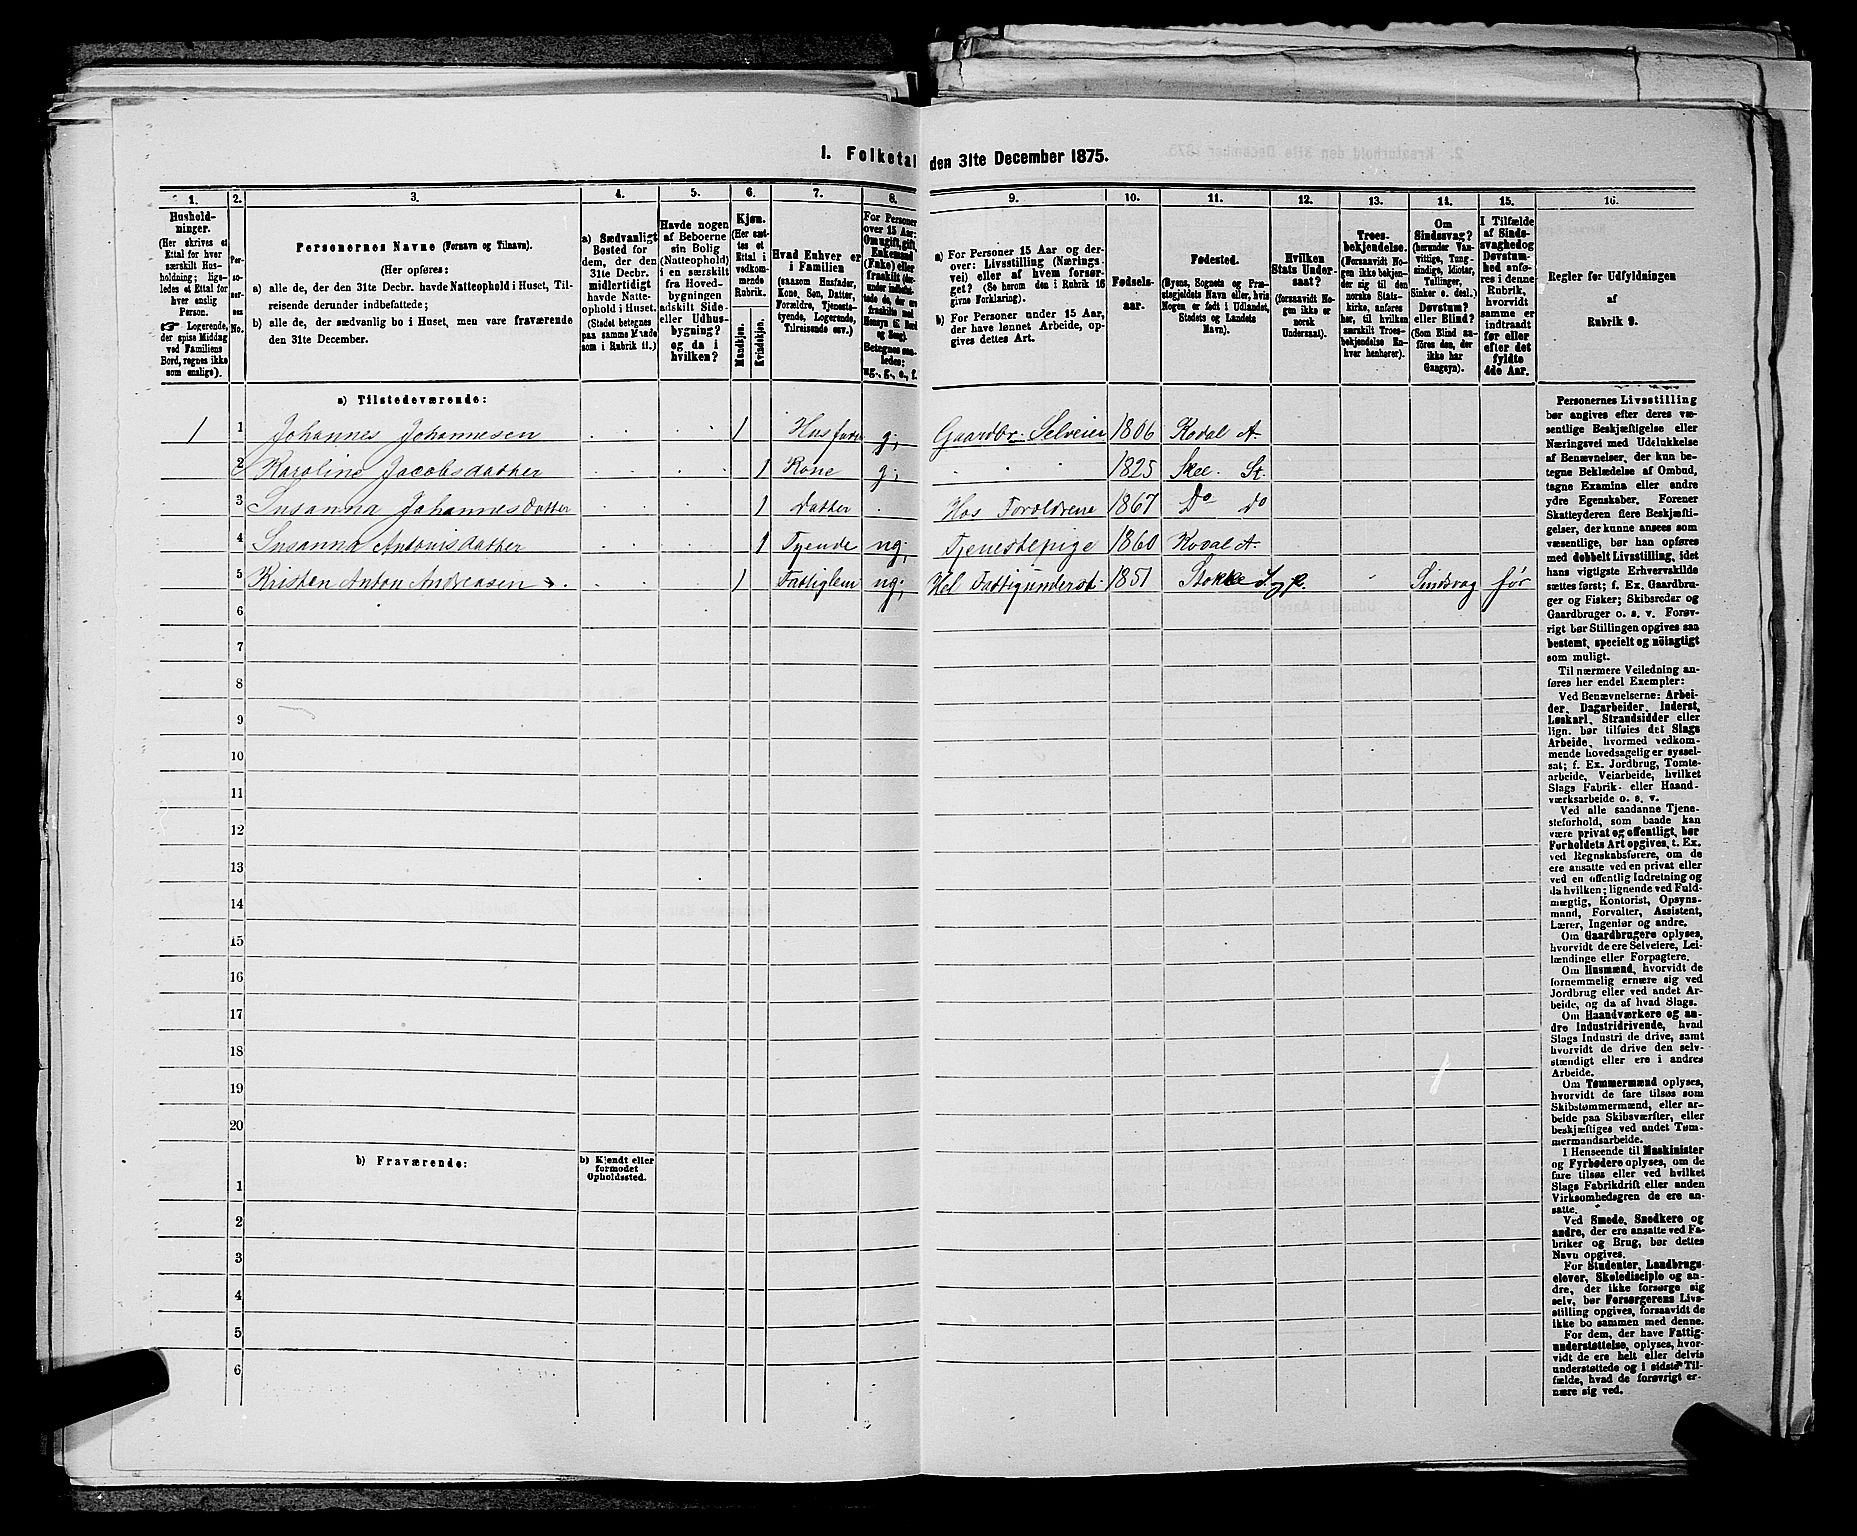 I. Folketal den 31te December 1875.
1. 2. 3. 4. 5. 6. 7. 8. 9. 10. 11. 12. 13. 14. 15. 16.
Hushold-
ninger.
(Her skrives et
Ettal for hver
særskilt Hus-
holdning; lige-
ledes et Ettal for
hver enslig
Person.
☞ Logerende,
der spise Middag
ved Familiens
Bord, regnes ikke
som enslige).
Per-
so-
ner-
nes
No.
Personernes Navne (Fornavn og Tilnavn).
(Her opføres:
a) alle de, der den 31te Decbr. havde Natteophold i Huset, Til-
reisende derunder indbefattede;
b) alle de, der sædvanlig bo i Huset, men vare fraværende
den 31te December.
a) Sædvanligt
Bosted for
dem, der den
31te Decbr.
midlertidigt
havde Natte-
ophold i Huset.
(Stedet betegnes
paa samme Maade
som i Rubrik 11.)
Havde nogen
af Beboerne
sin Bolig
(Natteophold)
i en særskilt
fra Hoved-
bygningen
adskilt Side-
eller Udhus-
bygning?
og da i
hvilken?
Kjøn.
(Her sæt-
tes et
Ettal i
vedkom-
mende
Rubrik.
Mandkjøn.
Kvindekjøn.
Hvad Enhver er
i Familien
(saasom Husfader,
Kone, Søn, Datter,
Forældre, Tjeneste-
tyende, Logerende,
Tilreisende osv.)
For Personer
over 15 Aar:
Om ugift, gift,
Enkemand
(Enke) eller
fraskilt
Betegnes saa-
ledes:
ug., g., e., f.
a) For Personer 15 Aar og der-
over: Livsstilling (Nærings-
vei) eller af hvem forsør-
get? (Se herom den i Rubrik 16
givne Forklaring).
b) For Personer under 15 Aar,
der have lønnet Arbeide, op-
gives dettes Art.
Fødsels-
aar.
Fødested.
(Byens, Sognets og Præ-
stegjeldets Navn eller, hvis
Nogen er født i Udlandet,
Stedets og Landets
Navn).
Hvilken
Stats Under-
saat?
(forsaavidt No-
gen ikke er
norsk
Undersaat).
Troes-
bekjendelse.
(Forsaavidt No-
gen ikke bekjen-
der sig til den
norske Stats-
kirke, anføres
her, til hvilken
særskilt Troes-
bekjendelse En-
hver henhører).
Om
Sindssvag?
(herunder Van-
vittige, Tung-
sindige, Idioter,
Tullinger,
Sinker o. desl.)
Døvstum?
eller Blind?
(Som Blind an-
føres den, der
ikke har
Gangsyn).
I Tilfælde
af Sinds-
svaghed og
Døvstum-
hed anfø-
res i denne
Rubrik,
hvorvidt
samme er
indtraadt
før eller
efter det
fyldte
4de Aar.
Regler før Udfyldningen
af
Rubrik 9.
a) Tilstedeværende:
1 1 Johannes Johannesen 1 Husfader g; Gaardbr. Selveier 1806 Kodal A.
2 Karoline Jacobsdatter 1 Kone g; 1825 Skee. St.
3 Susanna Johannesdatter 1 Datter Hos Foreldrene 1867 Do do
4 Susanna Antonisdatter 1 Tyende ug; Tjenestepige 1860 Kodal A.
5 Kristen Anton Andreasen 1 Fattiglem ug; Hel Fattigunderst. 1851 Stokke S. og P. Sindsvag før
6
7
8
9
10
11
12
13
14
15
16
17
18
19
20
b) Fraværende:
b) Kjendt eller
formodet
Opholdssted.
1
2
3
4
5
6
Personernes Livsstilling
bør angives efter deres væ-
sentlige Beskjæftigelse eller
Næringsvei med Udelukkelse
af Benævnelser, der kun be-
tegne Beklædelse af Ombud,
tagne Examina eller andre
ydre Egenskaber. Forener
Skatteyderen flere Beskjæfti-
gelser, der kunne ansees som
væsentlige, bør han opføres
med dobbelt Livsstilling, idet
hans vigtigste Erhvervskilde
sættes først; f. Ex. Gaardbru-
ger og Fisker; Skibsreder og
Gaardbruger o. s. v. Forøv-
rigt bør Stillingen opgives saa
bestemt, specielt og nöiagtigt
som muligt.
Til nærmere Veiledning an-
føres her endel Exempler:
Ved Benævnelserne: Arbei-
der, Dagarbeider, Inderst,
Løskarl, Strandsidder eller
lign. bør tilføies det Slags
Arbeide, hvormed vedkom-
mende hovedsagelig er syssel-
sat; f. Ex. Jordbrug, Tomte-
arbeide, Veiarbeide, hvilket
Slags Fabrik- eller Haand-
værksarbeide o. s. v.
Ved alle saadanne Tjene-
steforhold, som baade kan
være privat og offentligt, bør
Forholdets Art opgives, t. Ex.
ved Regnskabsførere, om de
ere ansatte ved en privat eller
ved en offentlig Indretning og
da hvilken; lignende ved Fuld-
mægtig, Kontorist, Opsyns-
mand, Forvalter, Assistent,
Lærer, Ingeniør og andre.
Om Gaardbrugere oplyses,
hvorvidt de ere Selveiere, Lei-
lændinge eller Forpagtere.
Om Husmænd, hvorvidt de
fornemmelig ernære sig ved
Jordbrug eller ved andet Ar-
beide, og da af hvad Slags.
Om Haandværkere og an-
dre Industridrivende, hvad
Slags Industri de drive, samt
hvorvidt de drive den selv-
stændigt eller ere i andres
Arbeide.
Om Tømmermænd oplyses,
hvorvidt de fare tilsøs som
Skibstømmermænd, eller ar-
beide paa Skibsværfter, eller
beskjæftiges ved andet Tøm-
mermandsarbeide.
I Henseende til Maskinister
og Fyrbødere oplyses, om de
fare tilsøs eller ved hvilket
Slags Fabrikdrift eller anden
Virksomhedsgren de ere an-
satte.
Ved Smede, Snedkere og
andre, der ere ansatte ved Fa-
briker og Brug, bør dettes
Navn opgives.
For Studenter, Landbrugs-
elever, Skoledisciple og an-
dre, der ikke forsørge sig
selv, bør Forsørgerens Livs-
stilling opgives, forsaavidt de
ikke bo sammen med denne.
For dem, der have Fattig-
understøttelse, oplyses, hvor-
vidt de ere helt eller delvis
understøttede og i sidste Til-
fælde, hvad de forøvrigt er-
nære sig ved.